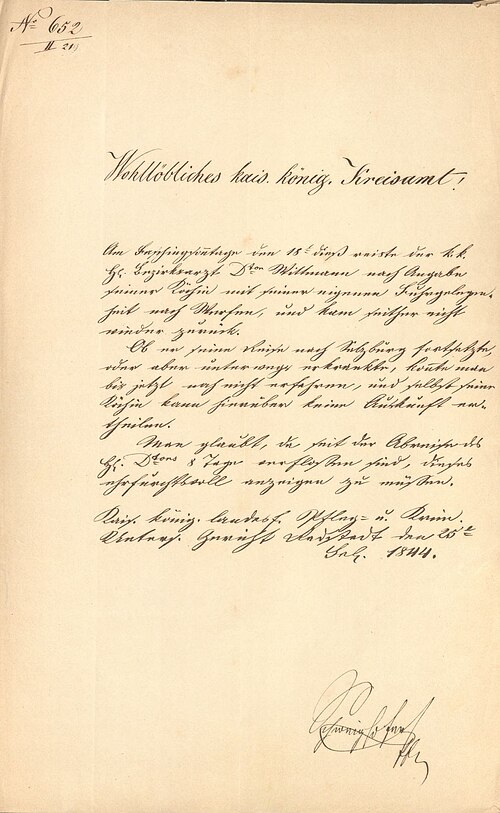 No 652
II 21)
Wohllöbliches kais. könig. Kreisamt!
Am Faschingsonntage den 18t dieß reiste der k. k.
H. Bezirksarzt Dtor Wittmann nach Angabe
seiner Köchin mit seiner eigenen Fuhrgelegen-
heit nach Werfen, und kam seither nicht
wieder zurück.
Ob er seine Reise nach Salzburg fortsetzte
oder aber unterwegs erkrankte, konnte man
bis jetzt noch nicht erfahren, und selbst seine
Köchin kann hierüber keine Auskunft er-
theilen.
Man glaubt, da seit der Abreise des
H. Dtors 8 Tage verflossen sind, dieses
ehrfurchtsvoll anzeigen zu müssen.
Kais. könig. landesf. Pfleg- u. Krim.
Unters. Gericht Radstadt den 25t
Feb. 1844.